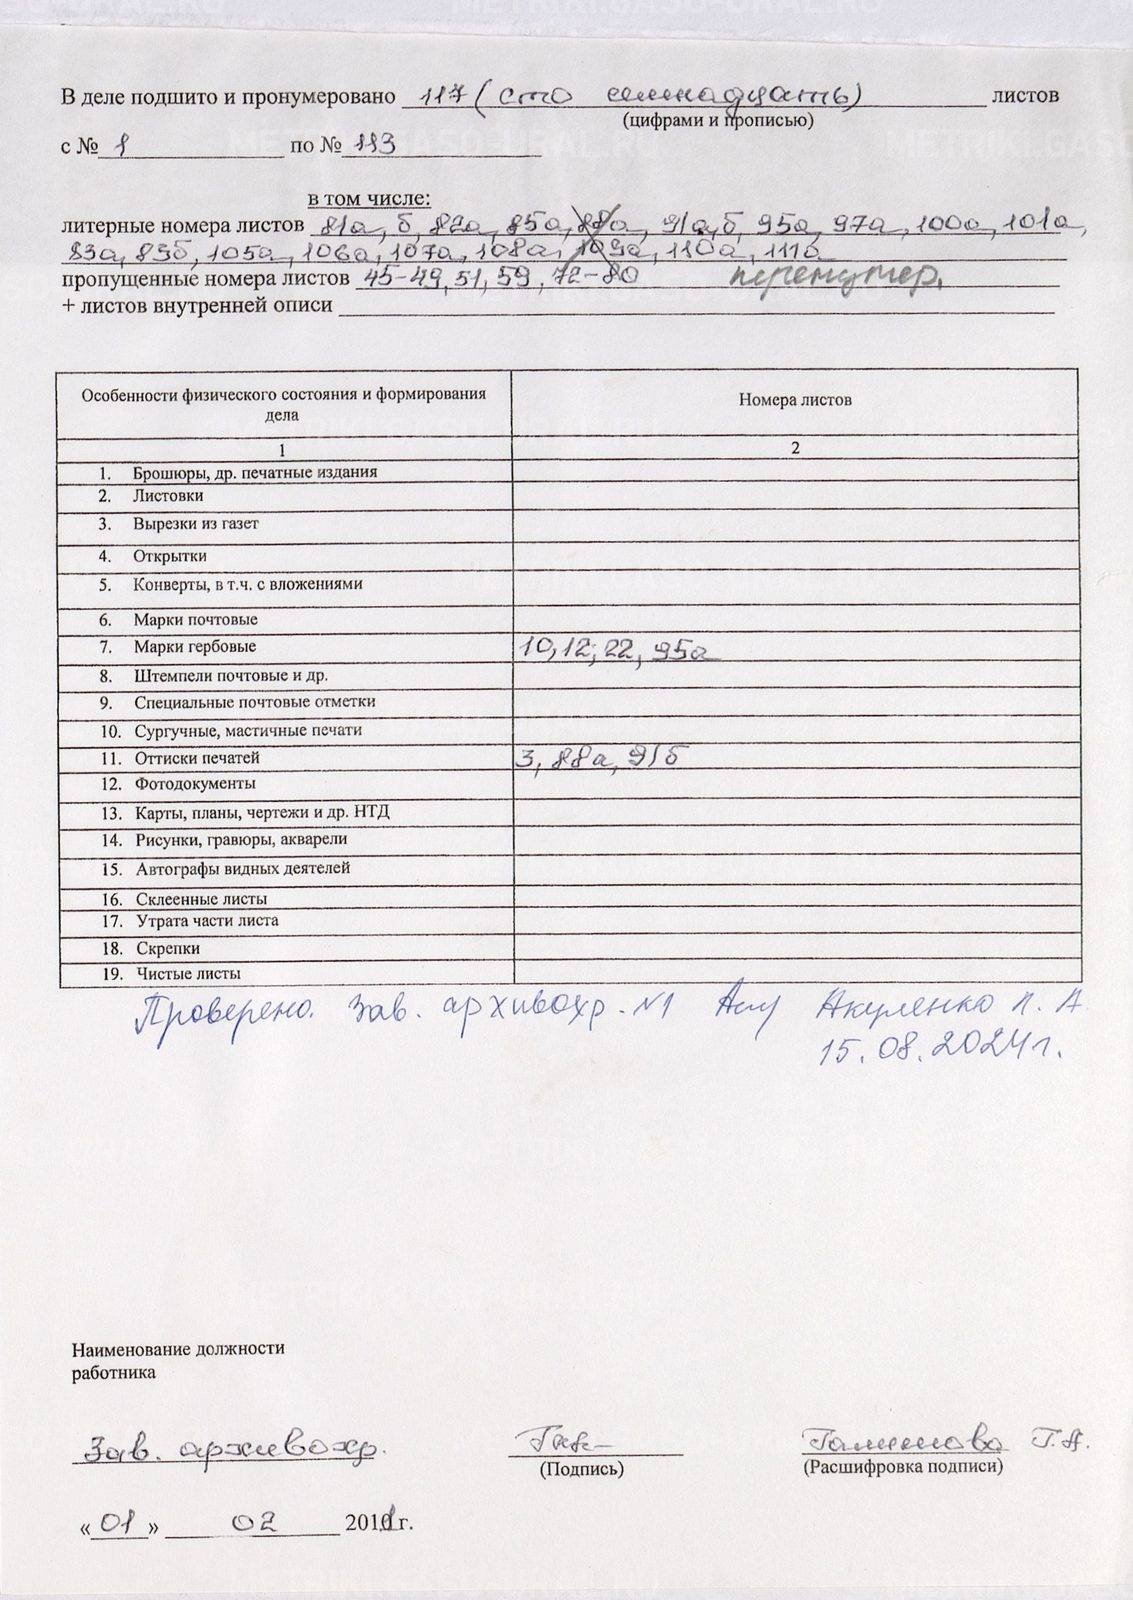 В деле подшито и пронумеровано 117 (сто семнадцать) листов
(цифрами и прописью)
с № 1 по № 113
в том числе:
литерные номера листов 81а, б, 82а, 85а, 88а, 91а,б, 95а, 97а, 100а, 101а,
83а, 83б, 105а, 106а, 107а, 108а, 109а, 110а, 111а
пропущенные номера листов 45-49, 51, 59, 72-80 перенумер.
+ листов внутренней описи
Особенности физического состояния и формирования дела Номера листов
1 2
1. Брошюры, др. печатные издания
2. Листовки
3. Вырезки из газет
4. Открытки
5. Конверты, в т.ч. с вложениями
6. Марки почтовые
7. Марки гербовые 10, 12, 22, 95а
8. Штемпели почтовые и др.
9. Специальные почтовые отметки
10. Сургучные, мастичные печати
11. Оттиски печатей 3, 88а, 91б
12. Фотодокументы
13. Карты, планы, чертежи и др. НТД
14. Рисунки, гравюры, акварели
15. Автографы видных деятелей
16. Склеенные листы
17. Утрата части листа
18. Скрепки
19. Чистые листы
Проверено. Зав. архивохр. №1 Акуленко Л. А.
15.08.2024г.
Наименование должности
работника
Зав. архивохр. Г.А.
(Подпись) (Расшифровка подписи)
«01» 02 2011г.